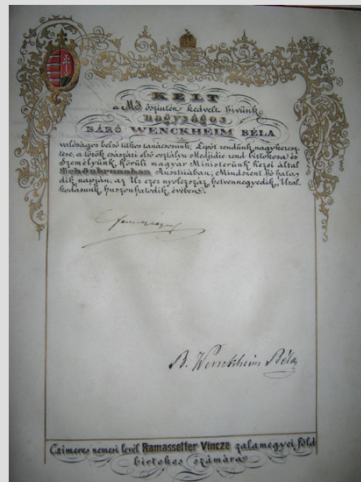 KELT
a Mi őszintén kedvelt hívünk
nagyságos
BÁRÓ WENCKHEIM BÉLA
valóságos belső titkos tanácsosunk, Lipót rendünk nagykeresz-
tese, a török császári első osztályu Medjidie rend birtokosa és
Személyünk körüli magyar Ministerünk kezei által
Schönbrunnban Austriában, Mindszent hó hatos
dik napján, az Úr ezer nyolczszáz hetvennegyedik, Ural-
kodásunk huszonhatodik évében.
B. Wenckheim Béla
Czimeres nemesi levél Ramassetter Vincze zalamegyei föld
birtokos számára